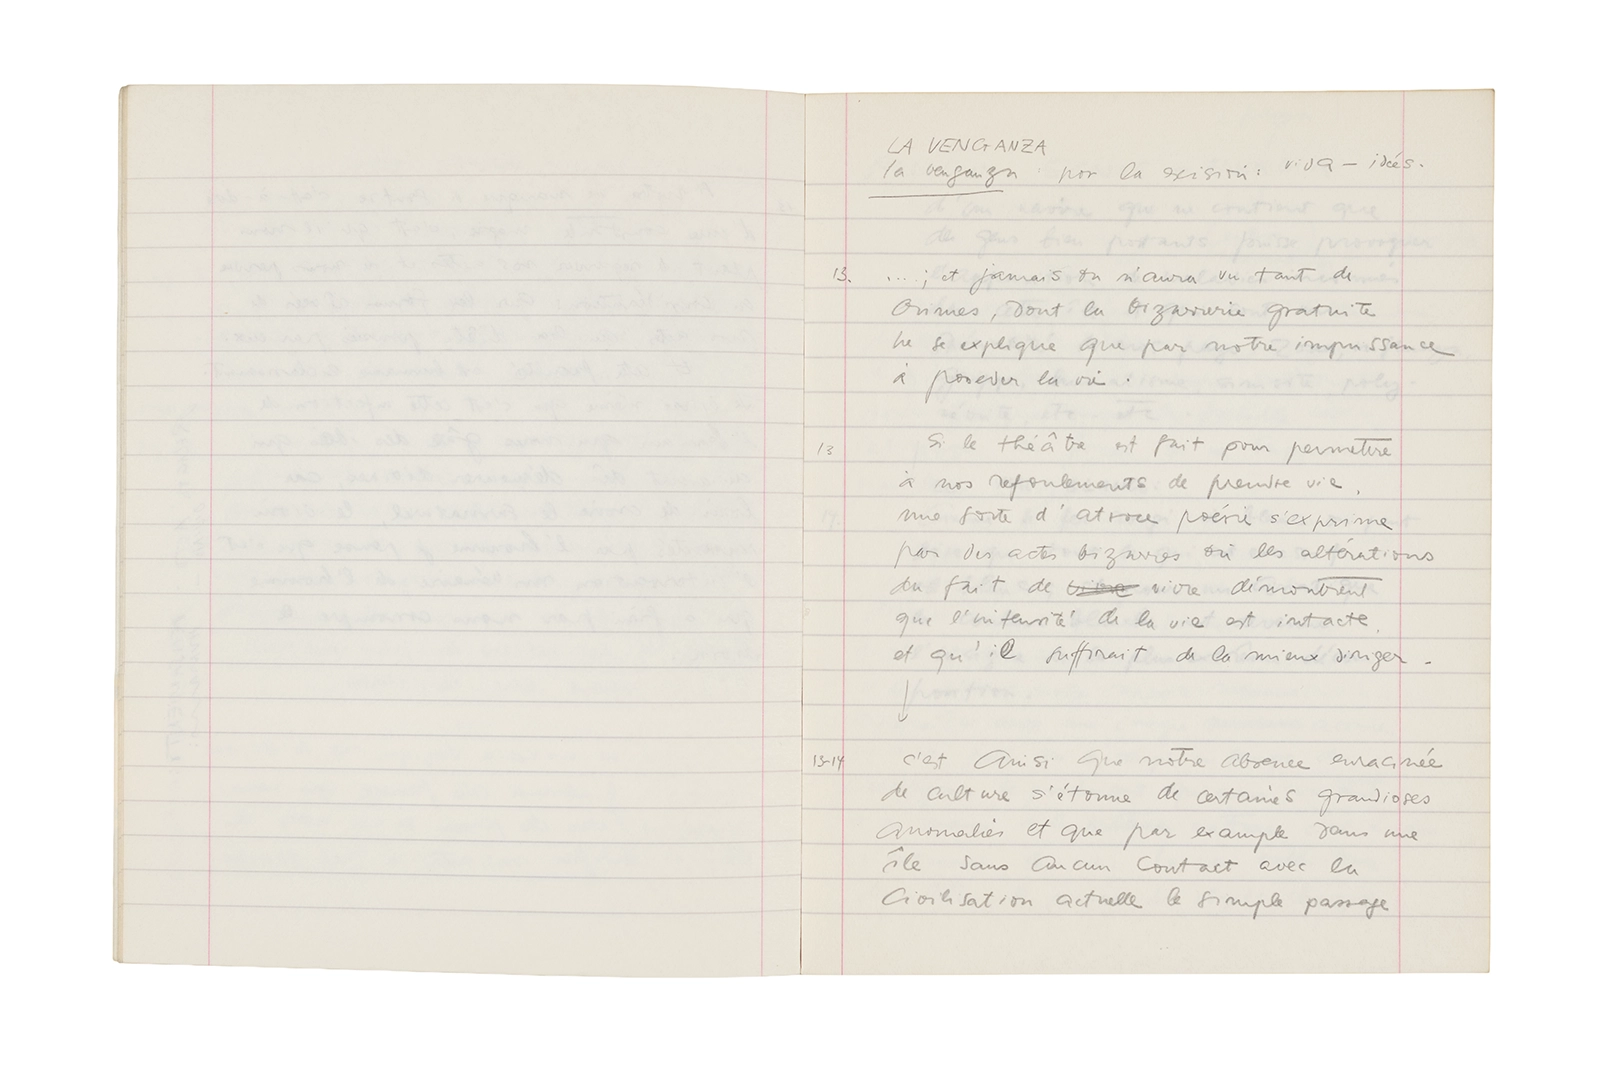 LA VENGANZA
la venganza por la excisión: vida – idées.
13. ....; et jamais on n'aura vu tant de
crimes, dont la bizarrerie gratuite
ne se explique que par notre impuissance
à posséder la vie.
13 Si le théâtre est fait pour permettre
à nos refoulements de prendre vie,
une sorte d'atroce poésie s'exprime
par des actes bizarres où les altérations
du fait de vivre démontrent
que l'intensité de la vie est intacte,
et qu'il suffirait de la mieux diriger.
13-14 c'est ainsi que notre absence enracinée
de culture s'étonne de certaines grandioses
anomalies et que par example dans une
île sans aucun contact avec la
civilisation actuelle le simple passage